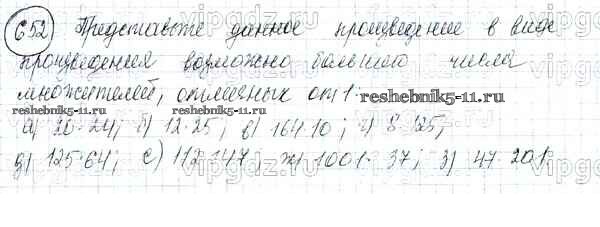 652) Представьте данное произведение в виде
произведения возможно большего числа
множителей, отличных от 1:
reshebnik5-11.ru
а) 20·24; б) 12·25; в) 164·10; г) 8·125;
reshebnik5-11.ru
д) 125·64; е) 112·147; ж) 1001·37; з) 47·201.